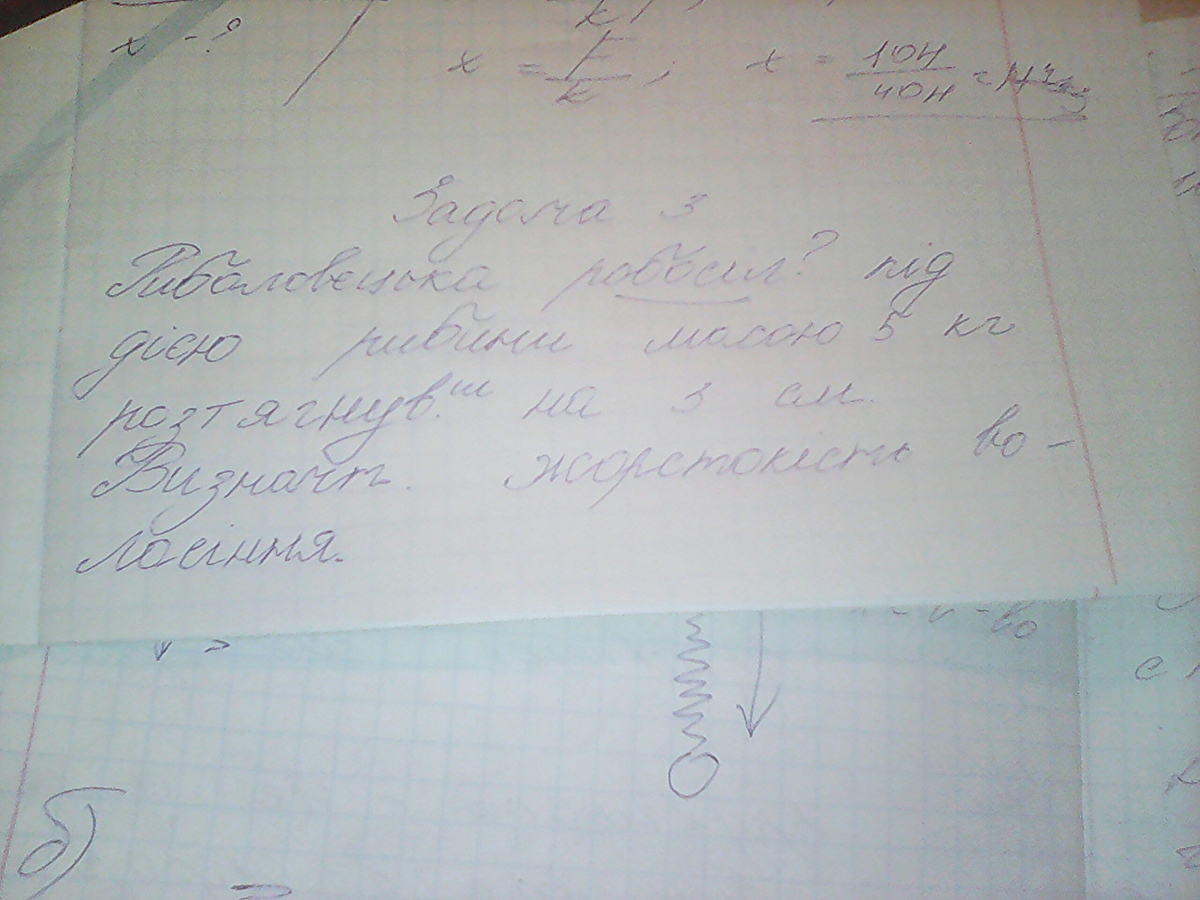 x - ?
x = F/k ; x = 10Н/40Н =
Задача 3
Рибаловецька робосил? під
дією рибини масою 5 кг
розтягнув.ш на 3 см.
Визначт. жорстокість во-
лосіння.
б)